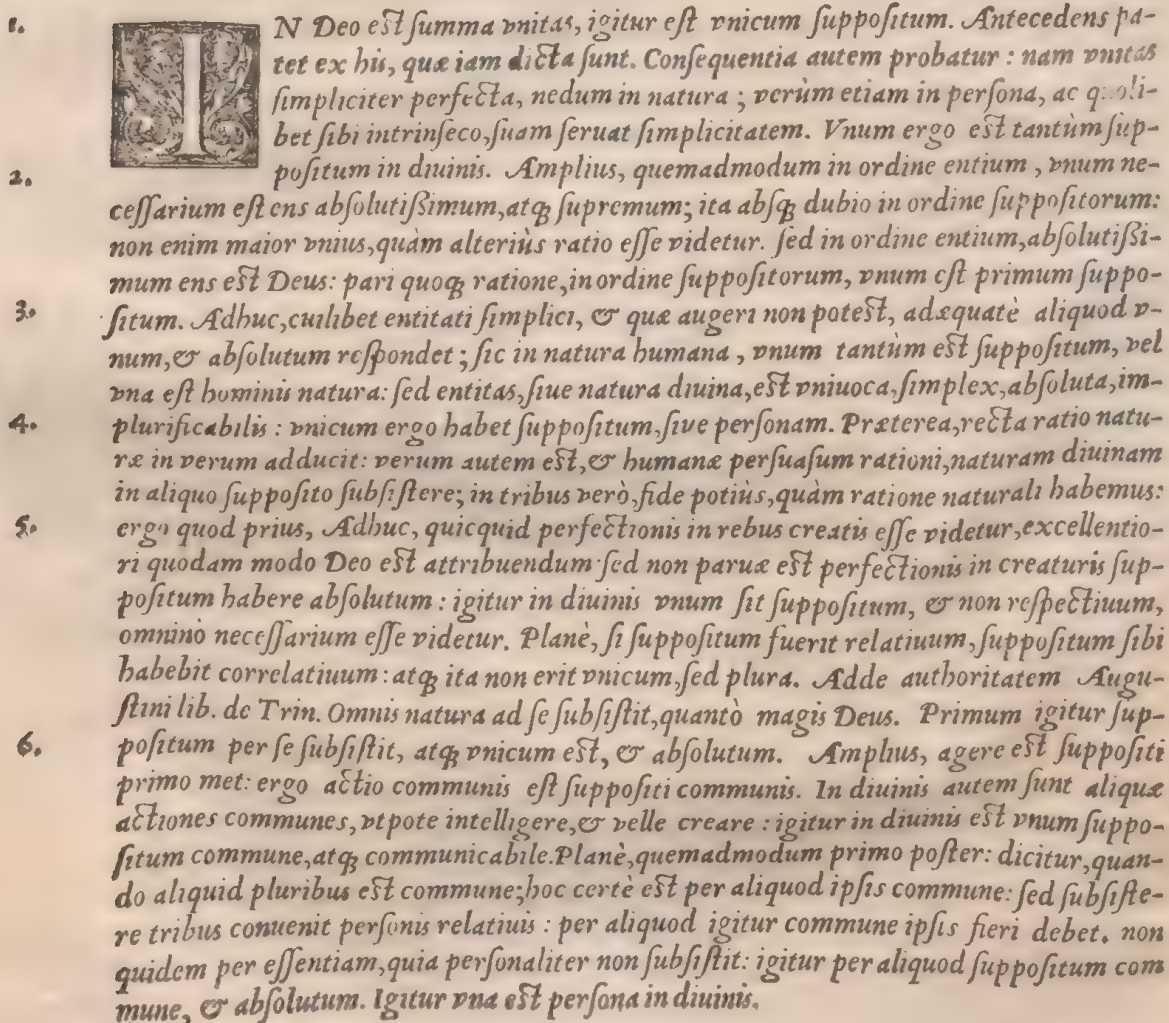 1. IN Deo est summa vnitas, igitur est vnicum suppositum. Antecedens pa-
tet ex his, quæ iam dicta sunt. Consequentia autem probatur: nam vnitas
simpliciter perfecta, nedum in natura; verùm etiam in persona, ac quoli-
bet sibi intrinseco, suam seruat simplicitatem. Vnum ergo est tantùm sup-
2. positum in diuinis. Amplius, quemadmodum in ordine entium, vnum ne-
cessarium est ens absolutißimum, atq; supremum; ita absq; dubio in ordine suppositorum:
non enim maior vnius, quàm alteriùs ratio esse videtur. sed in ordine entium, absolutißi-
mum ens est Deus: pari quoq; ratione, in ordine suppositorum, vnum est primum suppo-
3. situm. Adhuc, cuilibet entitati simplici, & quæ augeri non potest, adæquatè aliquod v-
num, & absolutum respondet; sic in natura humana, vnum tantùm est suppositum, vel
vna est hominis natura: sed entitas, siue natura diuina, est vniuoca, simplex, absoluta, im-
4. plurificabilis: vnicum ergo habet suppositum, sive personam. Præterea, recta ratio natu-
ræ in verum adducit: verum autem est, & humanæ persuasum rationi, naturam diuinam
in aliquo supposito subsistere; in tribus verò, fide potiùs, quàm ratione naturali habemus:
5. ergo quod prius, Adhuc, quicquid perfectionis in rebus creatis esse videtur, excellentio-
ri quodam modo Deo est attribuendum sed non paruæ est perfectionis in creaturis sup-
positum habere absolutum: igitur in diuinis vnum sit suppositum, & non respectiuum,
omninò necessarium esse videtur. Planè, si suppositum fuerit relatiuum, suppositum sibi
habebit correlatiuum: atq; ita non erit vnicum, sed plura. Adde authoritatem Augu-
stini lib. de Trin. Omnis natura ad se subsistit, quantò magis Deus. Primum igitur sup-
6. positum per se subsistit, atq; vnicum est, & absolutum. Amplius, agere est suppositi
primo met: ergo actio communis est suppositi communis. In diuinis autem sunt aliquæ
actiones communes, vtpote intelligere, & velle creare: igitur in diuinis est vnum suppo-
situm commune, atq; communicabile. Planè, quemadmodum primo poster: dicitur, quan-
do aliquid pluribus est commune; hoc certè est per aliquod ipsis commune: sed subsiste-
re tribus conuenit personis relatiuis: per aliquod igitur commune ipsis fieri debet. non
quidem per essentiam, quia personaliter non subsistit: igitur per aliquod suppositum com
mune, & absolutum. Igitur vna est persona in diuinis.